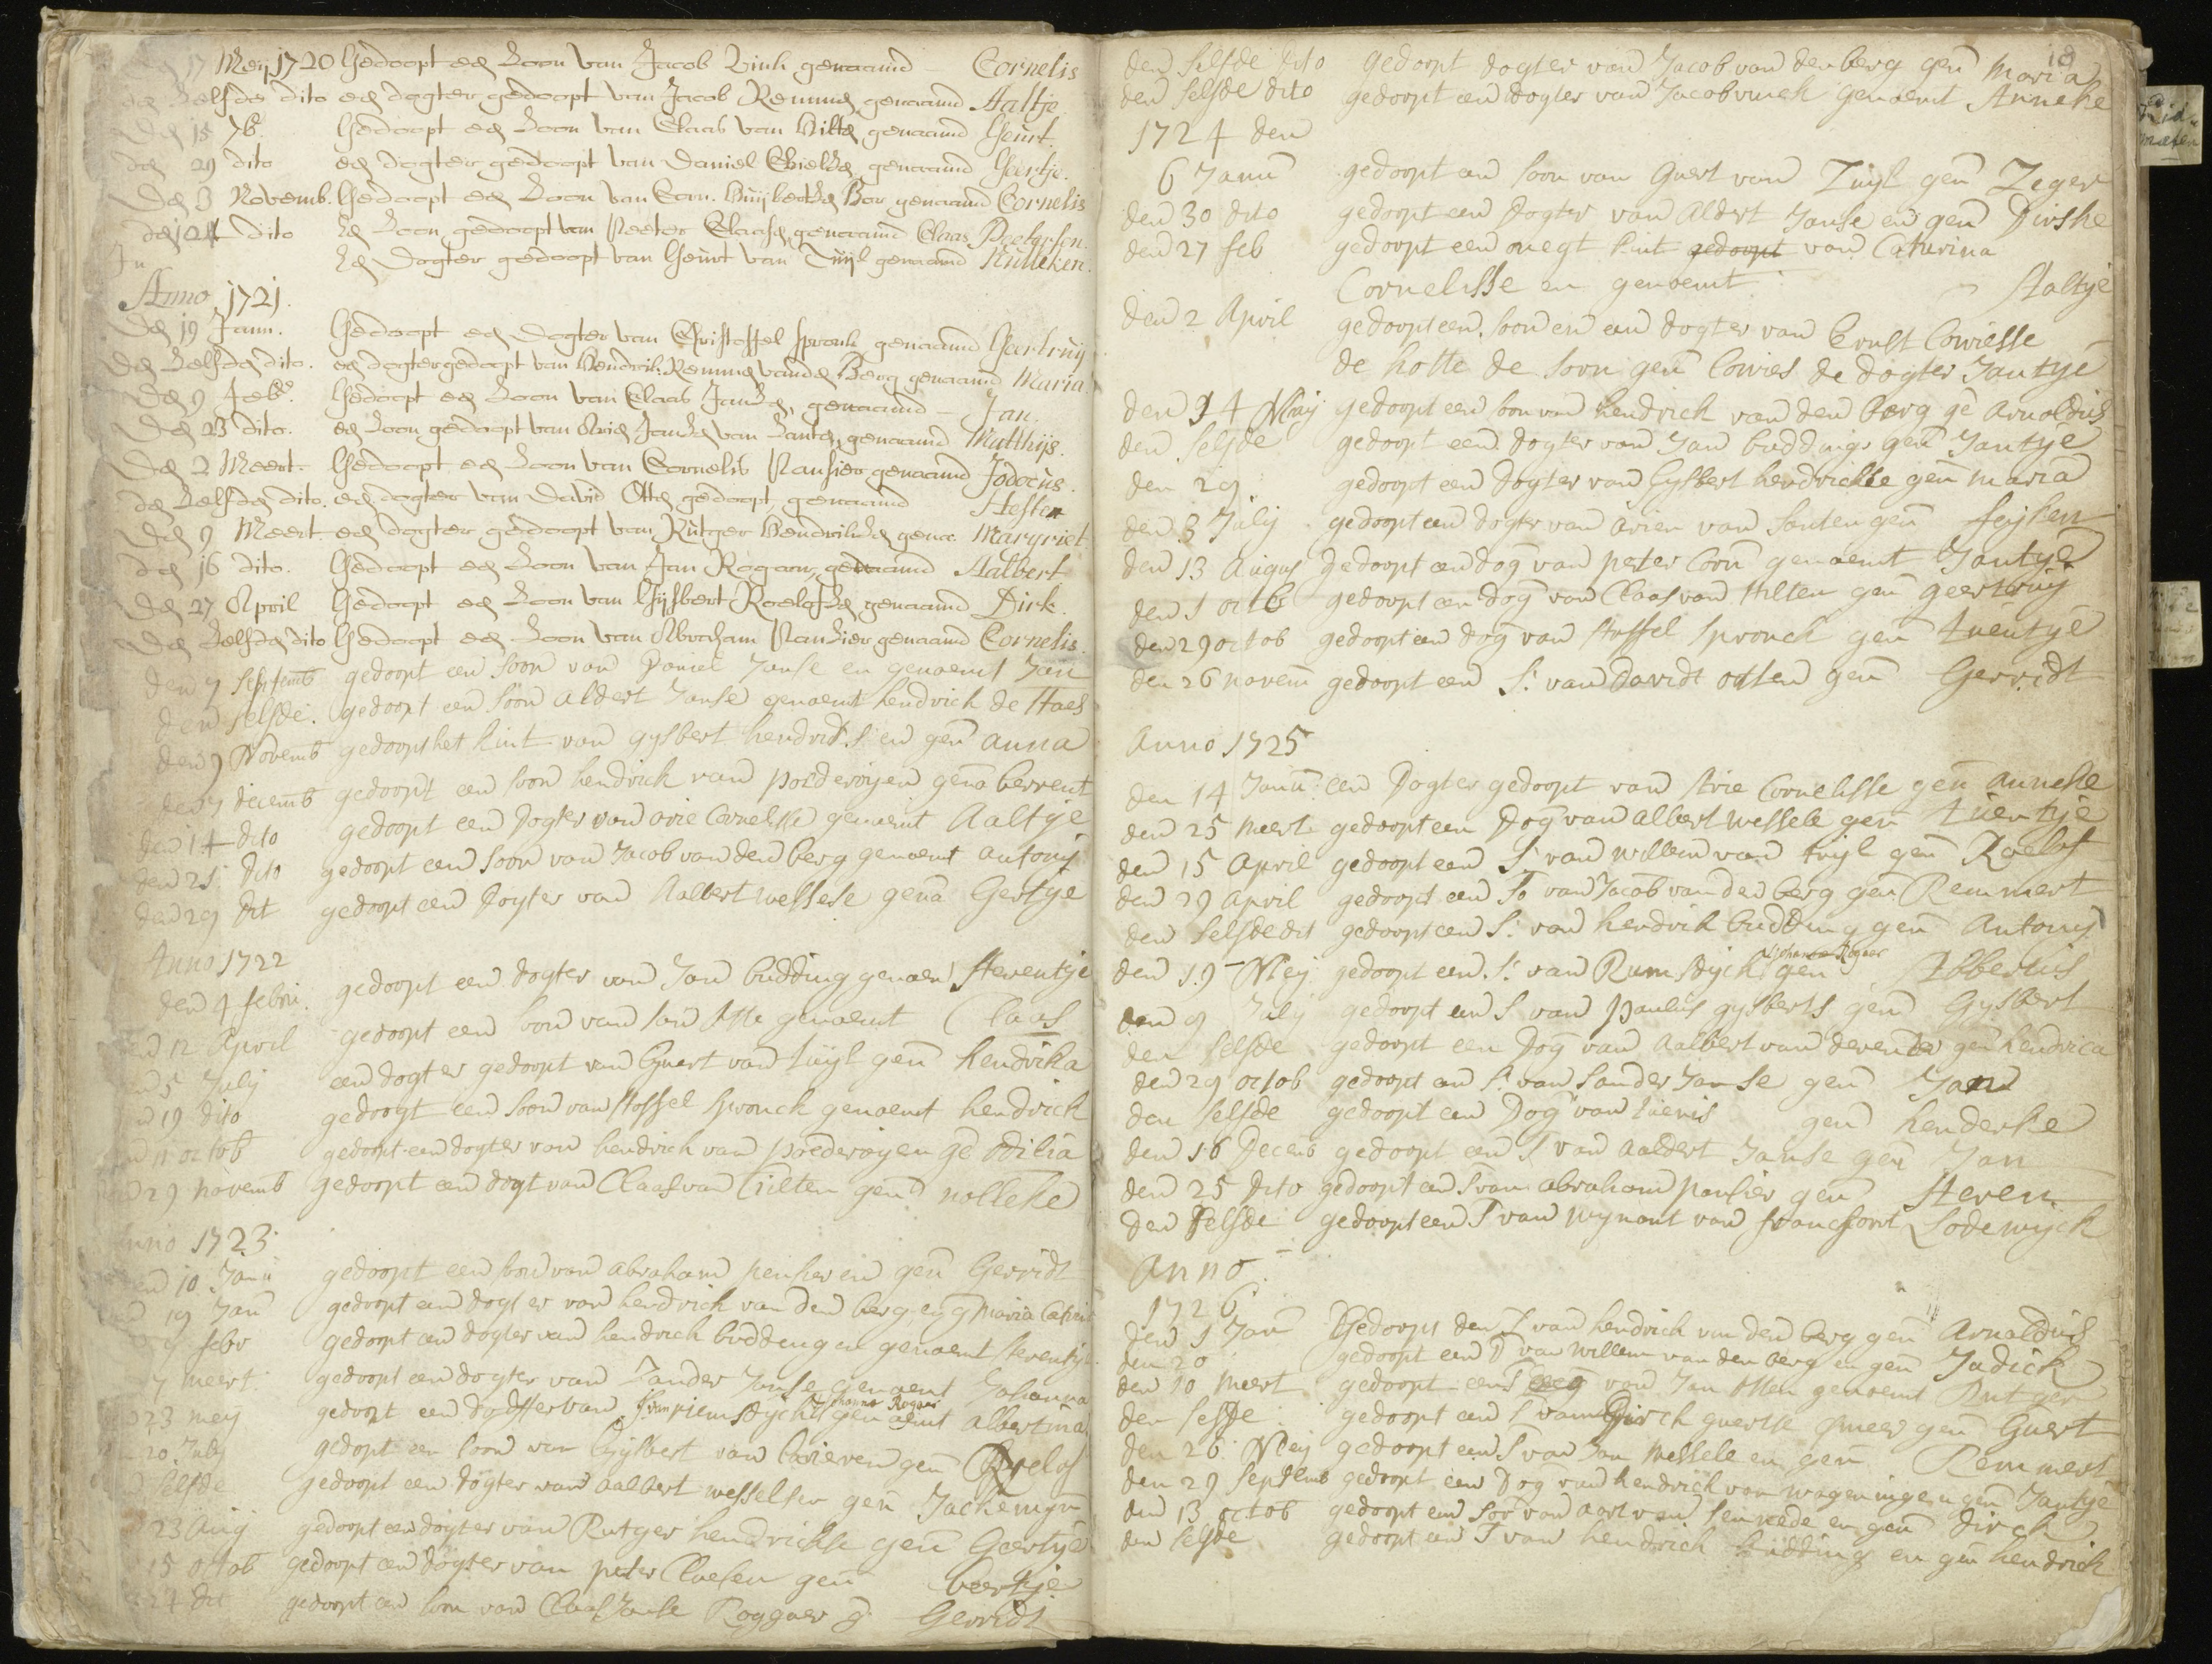 17 Meij 1720 Gedoopt een Zoon van Jacob Vink genaamd - Cornelis
Zelfde dito een dogter gedoopt van Jacob Remmes, genaamd Aaltje
Den 15 7b. Gedoopt een Zoon van Claas van Hilten, genaamd Geurt.
den 29 dito een dogter gedoopt van Daniel genaamd Geertje.
Den 3 Novemb. Gedoopt een Zoon van Corn. Huijbertsen Bor genaamd Cornelis
den 24 dito Een Zoon gedoopt van Peeter Claasen, genaamd Claas Peetersen.
Een Dogter gedoopt van Geurt van Tuijl genaamd Nulleken.
Anno 1721.
Den 19 Jann. Gedoopt een dogter van Christoffel Spronk genaamd Geertruij
den Zelfden dito. een dogter gedoopt van Hendrik Remmes vanden Berg genaamd Maria
Den 9 Feb. Gedoopt een Zoon van Claas Jansen, genaamd - Jan.
Den 23 dito. een Zoon gedoopt van Arien Jansen van Santen, genaamd Matthijs.
Den 2 Meert. Gedoopt een Zoon van Cornelis Pansier genaamd Jodocus.
den Zelfden dito. een dogter van David Otten gedoopt, genaamd Hester
Den 9 Meert een dogter gedoopt van Rutger Hendriksen gena. Margriet
den 16 dito. Gedoopt een Zoon van Jan Rogaar, genaamd Aalbert
Den 27 April Gedoopt een Zoon van Gijsbert Roelofsen genaamd Dirk.
Den Zelfden dito Gedoopt een Zoon van Abraham Pansier genaamd Cornelis.
den 7 septemb gedoopt een soon van Daniel Janse en genaemt Jan
den selfde. gedoopt een soon Aldert Janse genaemt hendrick de Haes
den 9 Novemb gedoopt het kint van gysbert hendricks en gen anna
den 7 decemb gedoopt een soon hendrick van poederoyen gena berrent
den 14 dito gedoopt een dogter van arie Cornelisse genaemt Aaltje
den 21 dito gedoopt een soon van Jacob van den berg genaemt antony
den 29 dit gedoopt een dogter van Aalbert wessele gena Gertje
Anno 1722
den 4 febru. gedoopt een dogter van Jan budding genaem steventje
12 April gedoopt een soon van Jan otte genaemt Claas
5 July een dogter gedoopt van Guert van tuyl gen hendrika
19 dito gedoopt een soon van stoffel spronck genaemt hendrick
11 octob gedoopt een dogter van hendrick van poederoyen ge odilia
29 novemb gedoopt een dogt van Claas van hilten gen nolleke
Anno 1723
10 Jann gedoopt een soon van abraham pensier en gen Gerridt
19 Jan gedoopt een dogter van hendrick van den berg en g maria
9 febr gedoopt een dogter van hendrick buddingen genaemt steventje
7 meert gedoopt een dogter van Zander Janse genaemt Johanna
23 mey gedoopt een dogter van J: van riemsdyck Johanna Rogaar genaemt albertina
20 July gedoopt een soon van Gysbert van gen Roelof
selfde gedoopt een dogter van aalbert wesselse gen Jackemyn
23 Aug gedoopt een dogter van Rutger hendrickse gen Geertje
15 octob gedoopt een dogter van peter Claesen gen beertje
27 dit gedoopt een soon van Claas Janse Roggaer g Gerridt
18
den selfde dito gedoopt dogter van Jacob van den berg gen Maria
den selfde dito gedoopt een dogter van Jacob vinck genaemt Anneke
1724 den
6 Jann gedoopt een soon van Guert van Tuyl gen Zeger
den 30 dito gedoopt een dogter van Aldert Janse en gen Dirske
den 27 feb gedoopt een onegt kint gedoopt van Catarina
Cornelisse en genaemt Aaltje
den 2 April gedoopt een soon en een dogter van Ernst Lowiesse
de holte de soon gen Lowies de dogter Jantje
den 14 May gedoopt een soon van hendrick van den berg ge Arnoldus
den selfde gedoopt een dogter van Jan buddings gen Jantje
den 29 gedoopt een dogter van Gysbert hendrickse gen maria
den 3 July gedoopt een dogter van arien van santen gen feyken
den 13 Augus gedoopt een dog van peter Corn genaemt Jantje
den 1 octb gedoopt een dog van Claas van hilten gen geertruy
den 29 octob gedoopt een dog van stoffel spronck gen tuentje
den 26 novem gedoopt een S: van Davidt otten gen Gerridt
Anno 1725
den 14 Jann een Dogter gedoopt van Arie Cornelisse gen anneke
den 25 meert gedoopt een Dog van albert wessele gen tuentje
den 15 April gedoopt een S: van willem van tuyl gen Roelof
den 29 April gedoopt een So van Jacob van den berg gen Remmert
den selfde dit gedoopt een S: van hendrick budding gen Antony
den 19 Mey gedoopt een S: van Rumsdyck Johanna Rogaar gen Abbertus
den 9 July gedoopt een S van paulus gysberts gen Gysbert
den selfde gedoopt een Dog van aalbert van deventer gen hendrica
den 29 octob gedoopt een S: van sander Janse gen Jan
den selfde gedoopt een Dog van tuenis gen henderke
den 16 Decemb gedoopt een S van aaldert Janse gen Jan
den 25 dito gedoopt een S van abraham pansier gen Steven
den selfde gedoopt een S van wynant van franckfort Lodewyck
Anno
1726
den 1 Jan Gedoopt den S van hendrick van den berg gen Arnoldus
den 20 gedoopt een D van willem van den berg en gen Jadick
den 10 meert gedoopt een S van Jan otten genaemt Rutger
den selfde: gedoopt een S van Dirck guertse gen Guert
den 26 Mey gedoopt een S van Jan wessele en gen Remmert
den 29 septemb gedoopt een Dog van hendrick van wageningen gen Jantje
den 13 octob gedoopt een soo van aart van en gen dirck
den selfde gedoopt een S van hendrick budding en gen hendrick